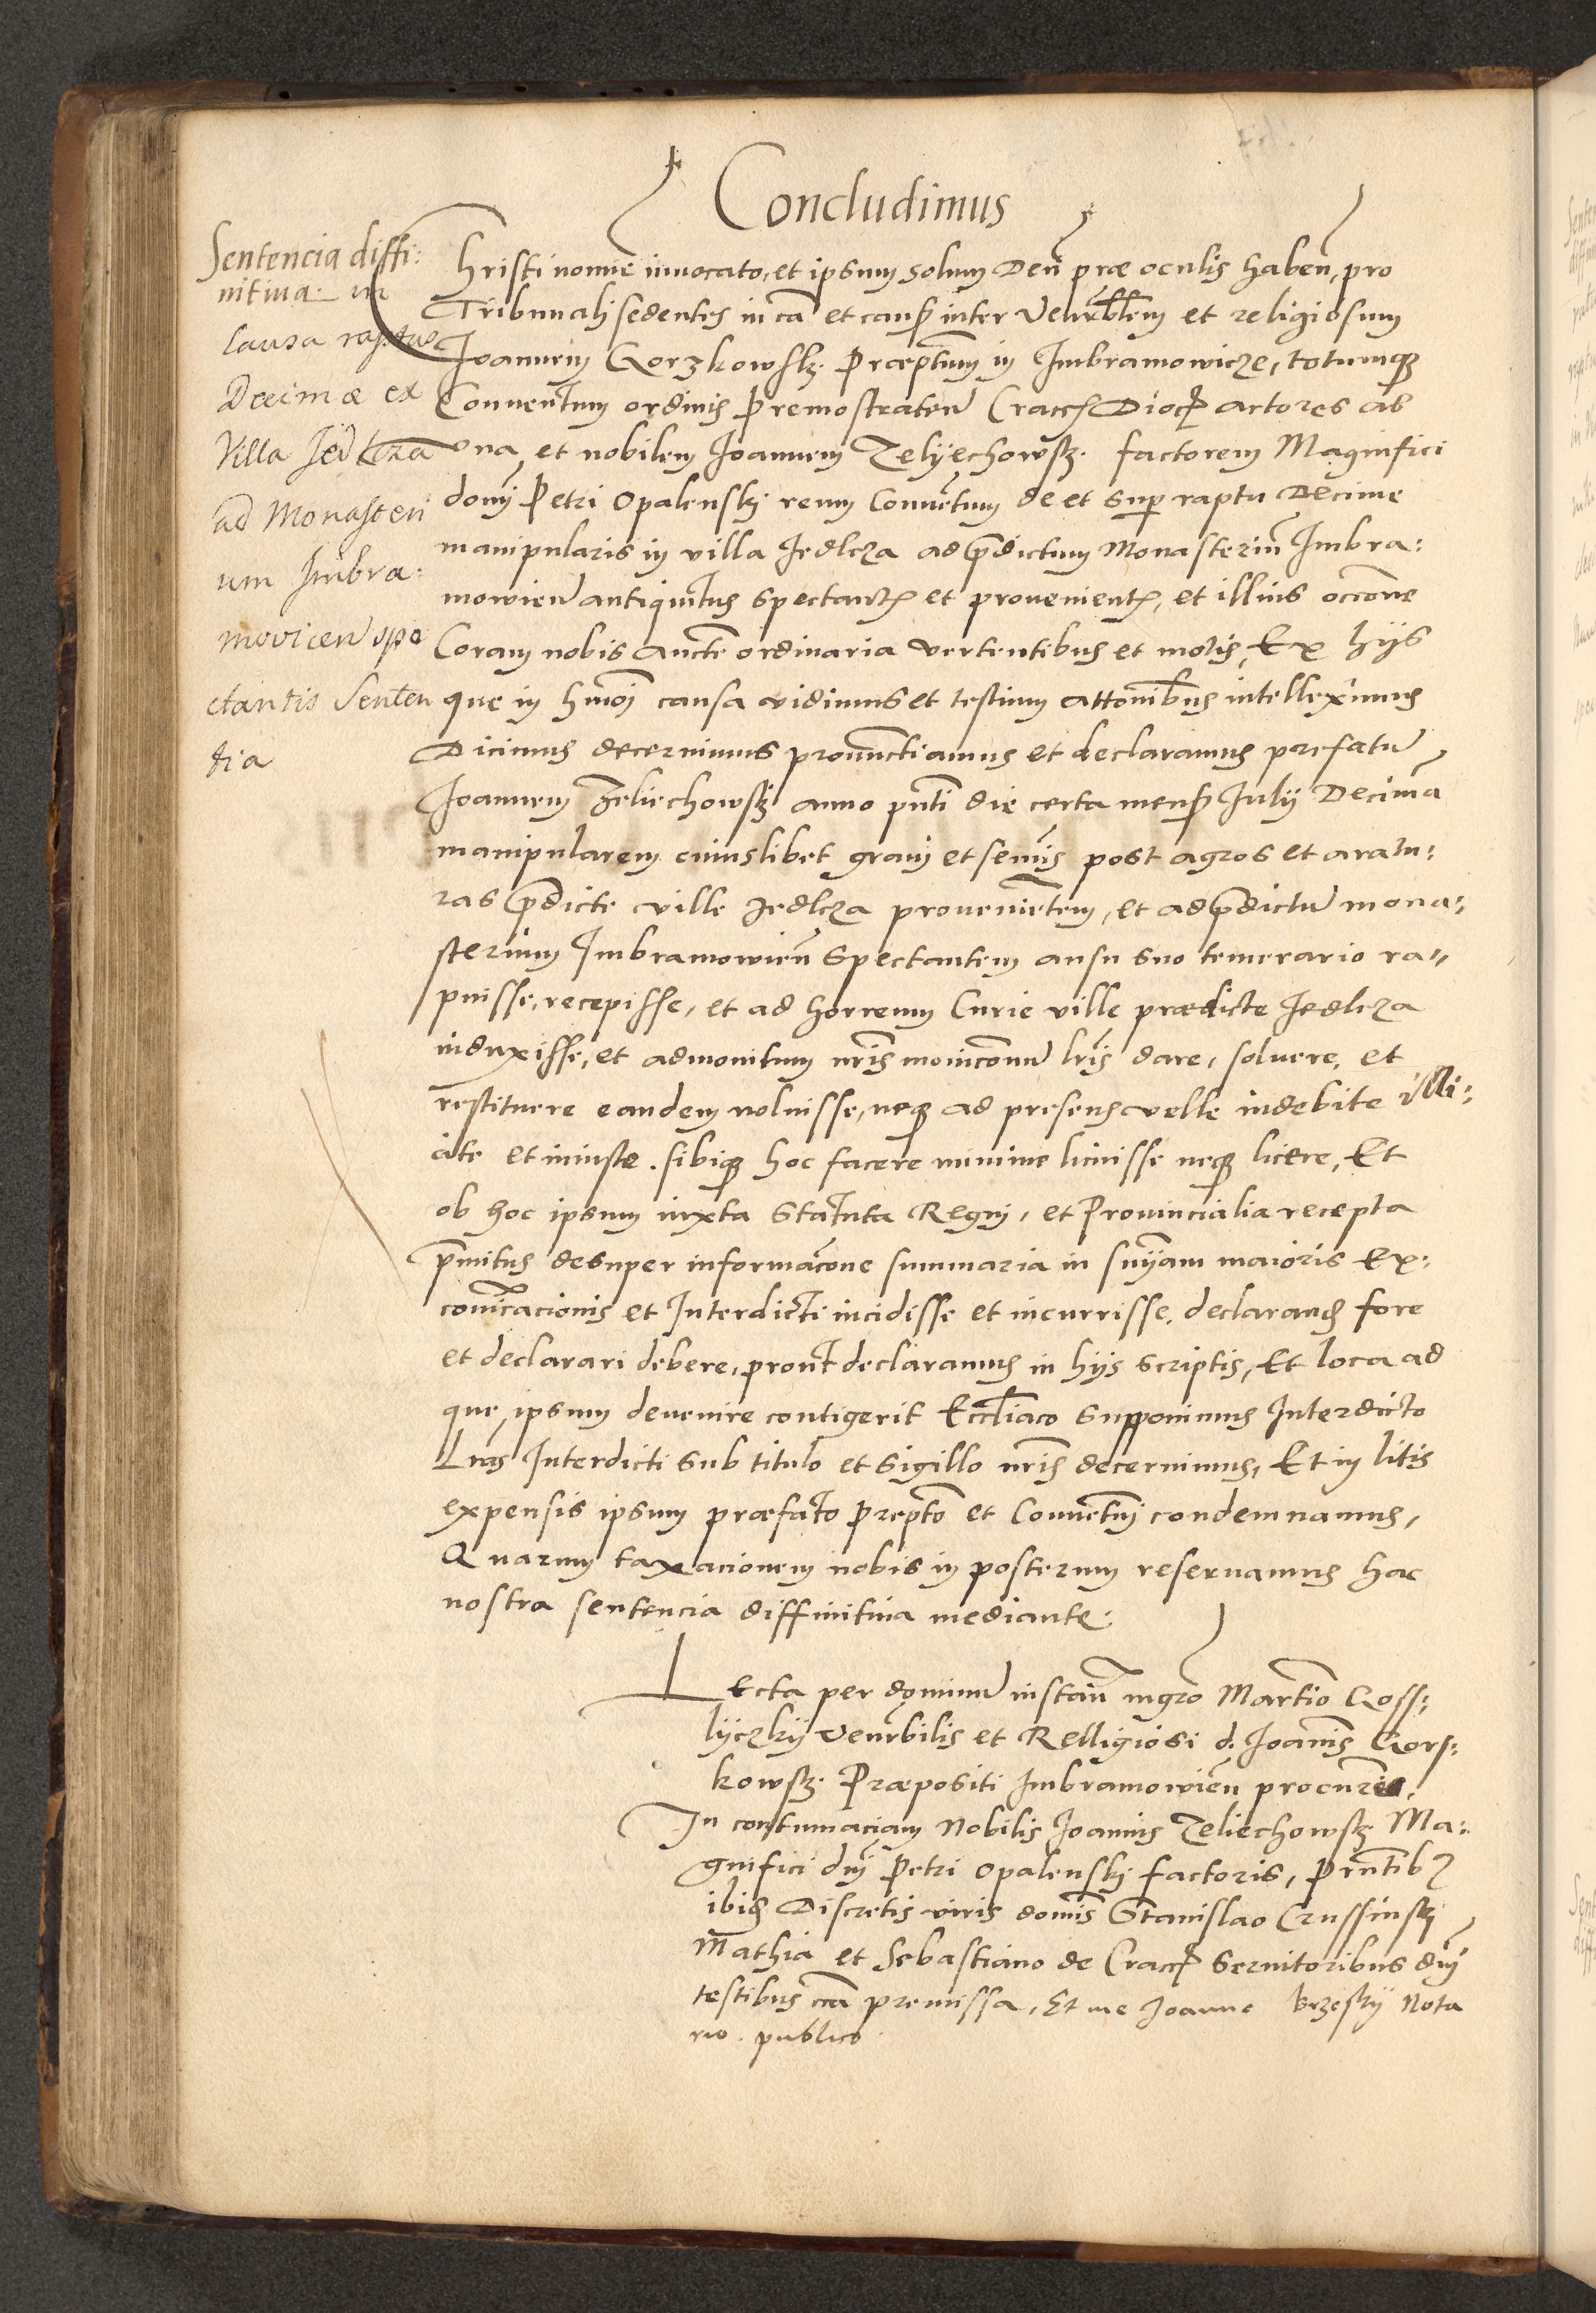 Concludimus
Sentencia diffi:
nitiua in
causa raptus
Decimæ ex
Villa Jedlcza
ad Monasteri
um Imbra:
movicen̄ spe
ctantis Senten
tia
Christi nomīe inuocato, et ipsum solum Deū præ oculis haben̄, pro
Tribunali sedentes in cā et caus̄ inter Venerablem et religiosum
Joannem Gorzkowsk. Præptum in Imbramowicze, totumq̄
Conuentum ordinis Premostraten̄ Cracc̄ Dioc̄ actores ab
vna, et nobilem Joannem Zelyechowsk. factorem Magnifici
domī Petri Opalensky reum Conuētum de et sup̄ raptu Decime
manipularis in villa Jedlcza ad p̄dictum Monasteriū Imbra:
mowien̄ antiquitus spectan̄t et prouenient̄, et illius occōne
Coram nobis aucte ordinaria vertentibus et motis, Ex hijs
que in hmōi causa vidimus et testium attōnibus intelleximus
Dicimus decernimus pronuncciamus et declaramus prefatū
Joannem Zeliechowsk anno pn̄ti die certa mens̄ Julij Decimā
manipularem cuiuslibet grani et semīs post agros et aratu:
ras p̄dicte ville Jedlcza prouenīetem, et ad p̄dictū mona:
sterium Imbramowien̄ spectantem ausu suo temerario ra:
puisse, recepisse, et ad horreum Curie ville prædicte Jedlcza
induxisse, et admonitum nr̄is monicōnum lr̄is dare, soluere, et
restituere eandem noluisse, neq̄ ad presens velle indebite illi:
cite et iniuste. sibiq̄ hoc facere minime licuisse neq̄ licere, Et
ob hoc ipsum iuxta Statuta Regni, et Prouincialia recepta
p̄mitus desuper informacōne summaria in snīam maioris Ex:
comūcacionis et Interdicti incidisse et incurrisse, declarand̄ fore
et declarari debere, prout declaramus in hijs scriptis, Et loca ad
que ipsum deuenire contigerit Ecclīaco supponimus Interdicto
Lras Interdicti sub titulo et sigillo nr̄is decernimus, Et in litis
expensis ipsum præfato Prepto et Conuētui condemnamus,
Quarum taxacionem nobis in posterum reseruamus hac
nostra sentencia diffinitiua mediante.
Lecta per dominū instan̄ mgro Martino Goss:
lyczky venerbilis et Relligiosi d. Joannis Gors:
kowsk. Præpositi Imbramowien̄ procure.
In contumaciam Nobilis Joannis Zeliechowsk Ma:
gnifici dnī Petri Opalensky factoris, Prn̄tibz
ibid̄ Discretis viris domīs Stanislao Crussinsky
Mathia et Sebastiano de Cracc̄ seruitoribus dnī
testibus cc̄a premissa, Et me Joanne Brzesky Nota
rio publico